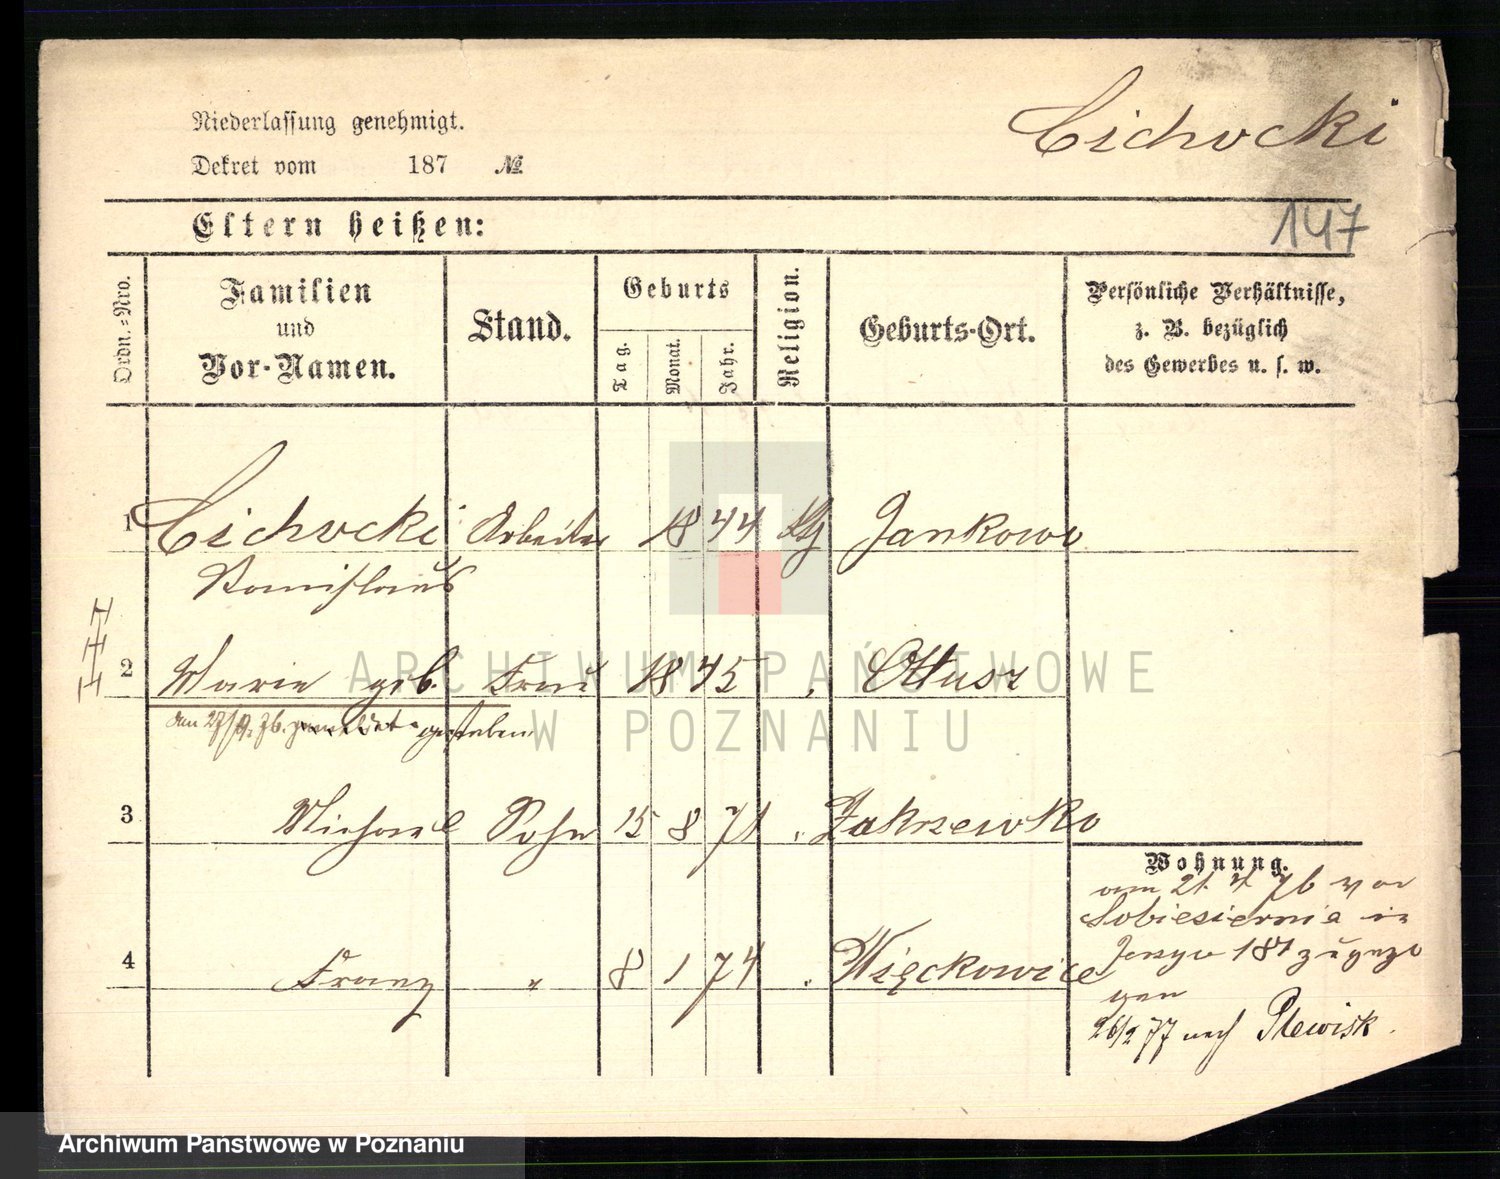 Cichocki
Niederlassung genehmigt.
Dekret vom 187 №
Eltern heißen:
147
Ordn.=Nro.
Familien
und
Vor-Namen.
Stand.
Geburts
Tag.
Monat.
Jahr.
Religion.
Geburts-Ort.
Persönliche Verhältnisse,
z. B. bezüglich
des Gewerbes u. s. w.
1 Cichocki Arbeiter 1844 Jankowo
Stanislaus
2 Marie geb. Frau 1845 Ottusz
den 27/9. 76. gestorben
3 Michael Sohn 15 8 71 Zakrzewko
4 Franz " 8 1 74 Więckowice
Wohnung.
vom 21. 4. 76 von
Sobiesiernia in
Jerzyce 181 zugezo
gen
26/2 77 nach Plewisk.
ARCHIWUM PAŃSTWOWE
W POZNANIU
Archiwum Państwowe w Poznaniu